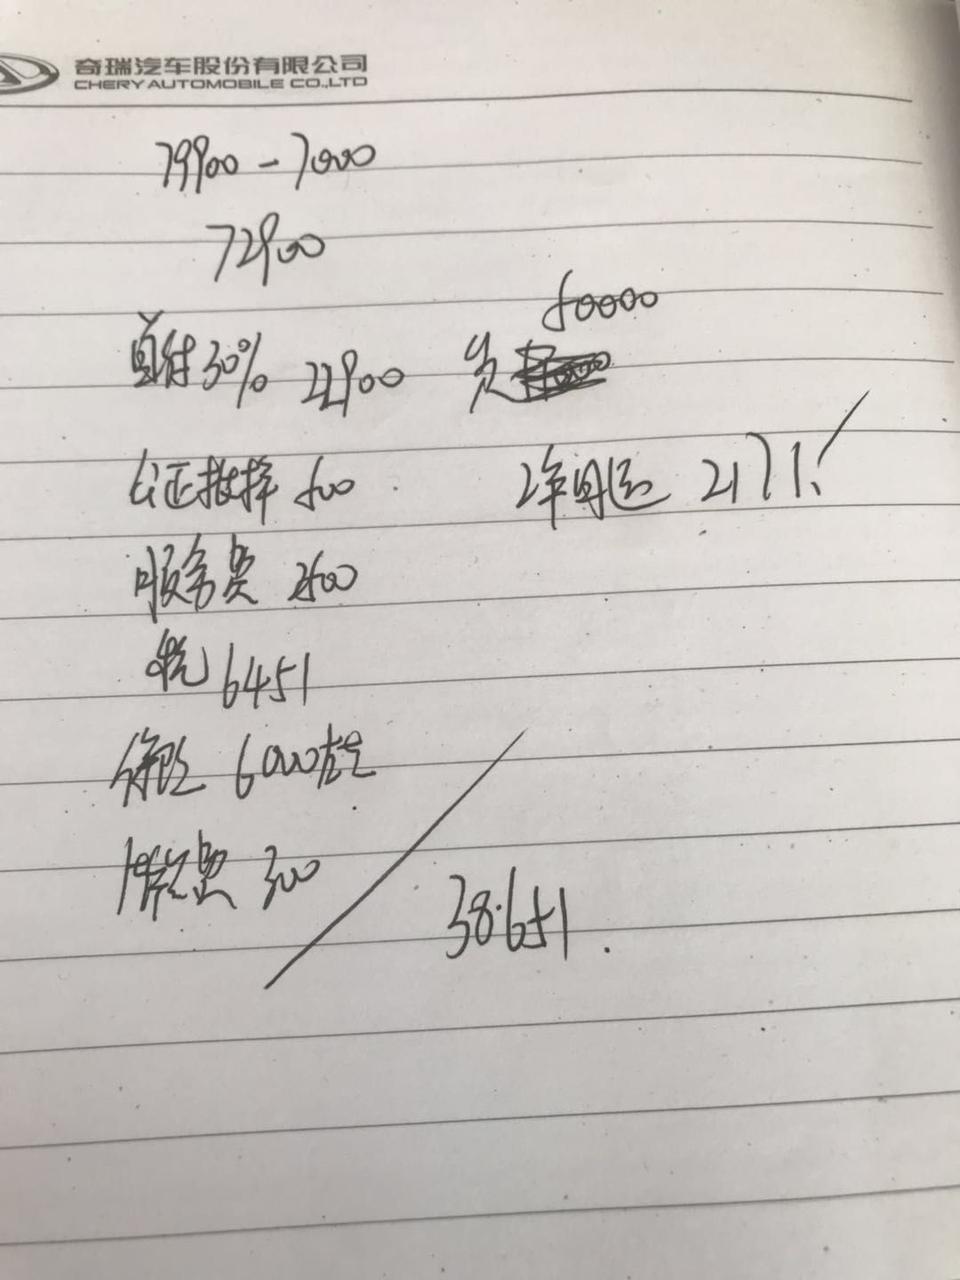 奇瑞汽车股份有限公司
CHERY AUTOMOBILE CO.,LTD
79900-7000
72900
50000
首付30% 22900 贷
公证抵押 500
2年月还 2171
服务费 2500
税 6451
保险 6000左右
300
38.651.